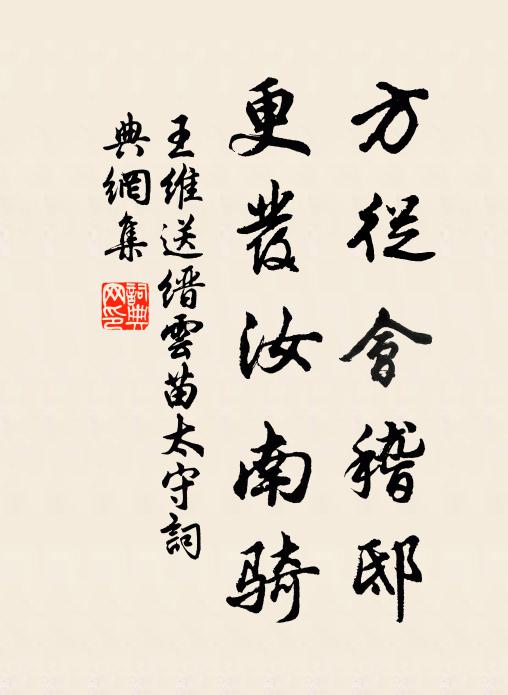 方從會稽邸
更發汝南騎
王維送缙雲苗太守詞
典網集
詞典
网印